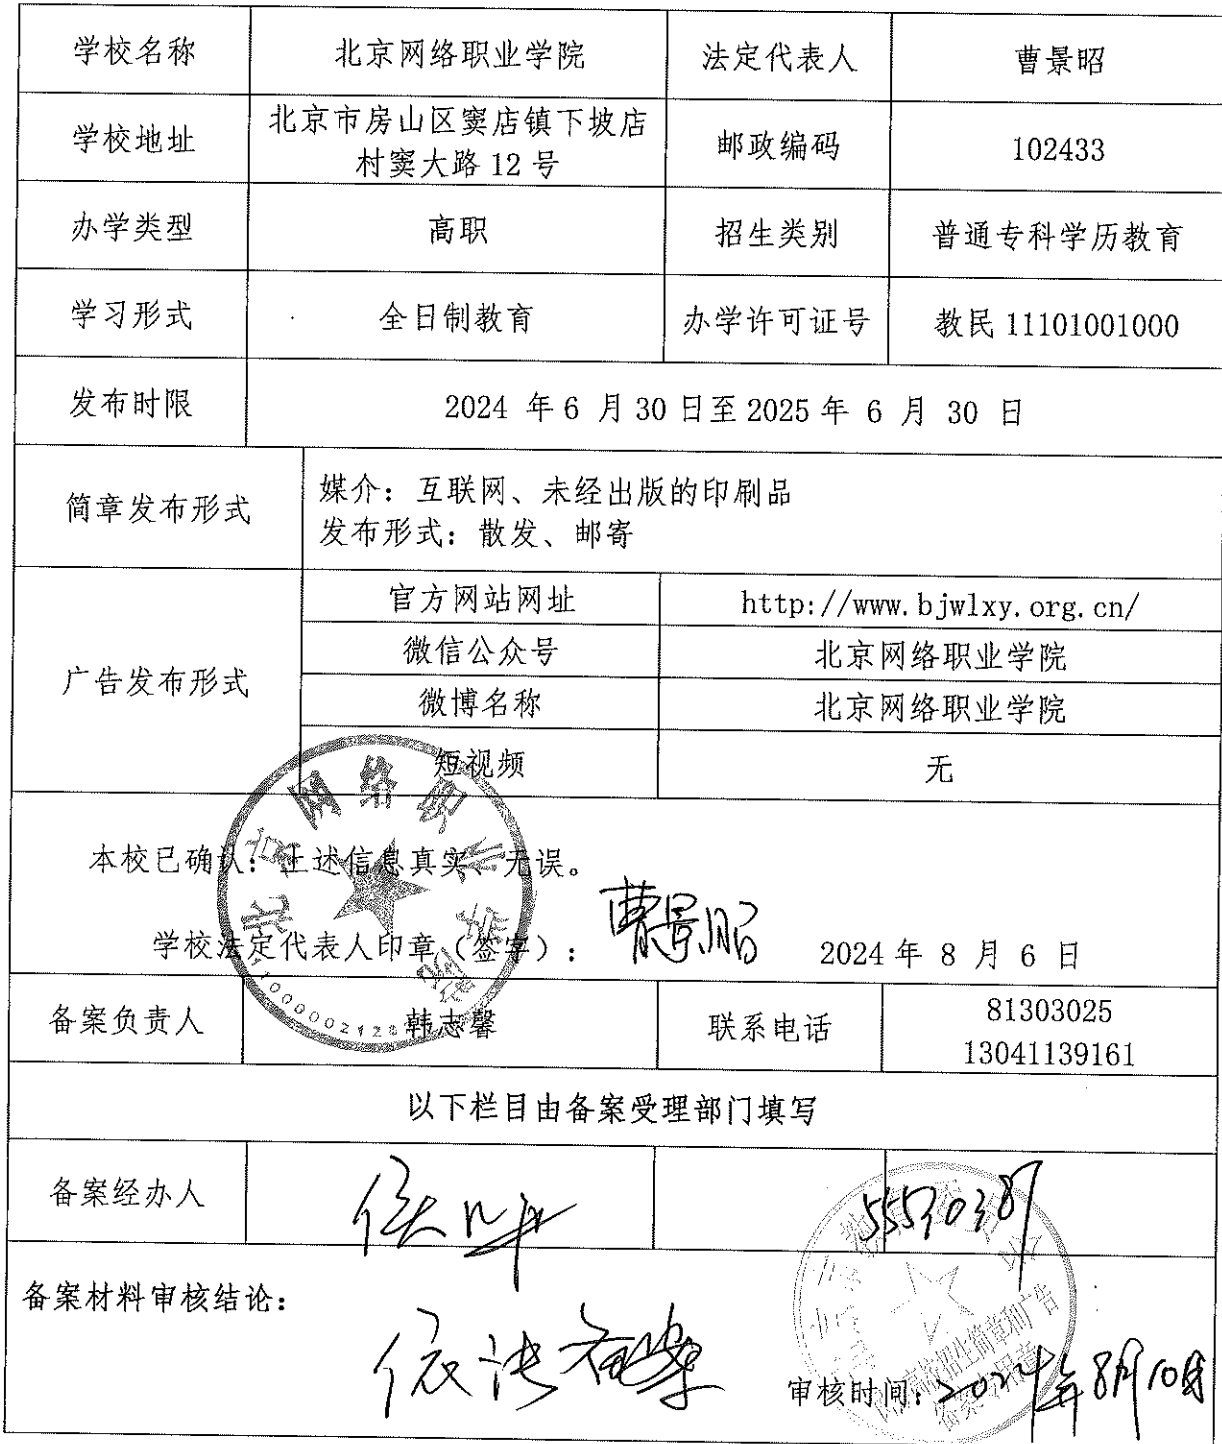 学校名称 北京网络职业学院 法定代表人 曹景昭
学校地址 北京市房山区窦店镇下坡店
村窦大路 12 号 邮政编码 102433
办学类型 高职 招生类别 普通专科学历教育
学习形式 全日制教育 办学许可证号 教民 11101001000
发布时限 2024 年 6 月 30 日至 2025 年 6 月 30 日
简章发布形式 媒介：互联网、未经出版的印刷品
发布形式：散发、邮寄
广告发布形式
官方网站网址 http://www.bjwlxy.org.cn/
微信公众号 北京网络职业学院
微博名称 北京网络职业学院
短视频 无
北京网络职业学院
本校已确认：上述信息真实、无误。
学校法定代表人印章（签字）： 曹景昭 2024 年 8 月 6 日
备案负责人 韩志馨 联系电话 81303025
13041139161
以下栏目由备案受理部门填写
备案经办人 55530387
备案材料审核结论：
依法备案
审核时间：2024年8月10日